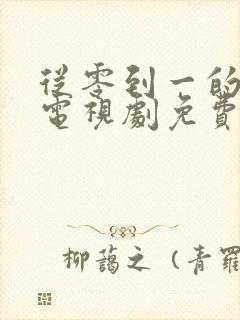 從零到一的
電視劇免費
柳藹之（青羅